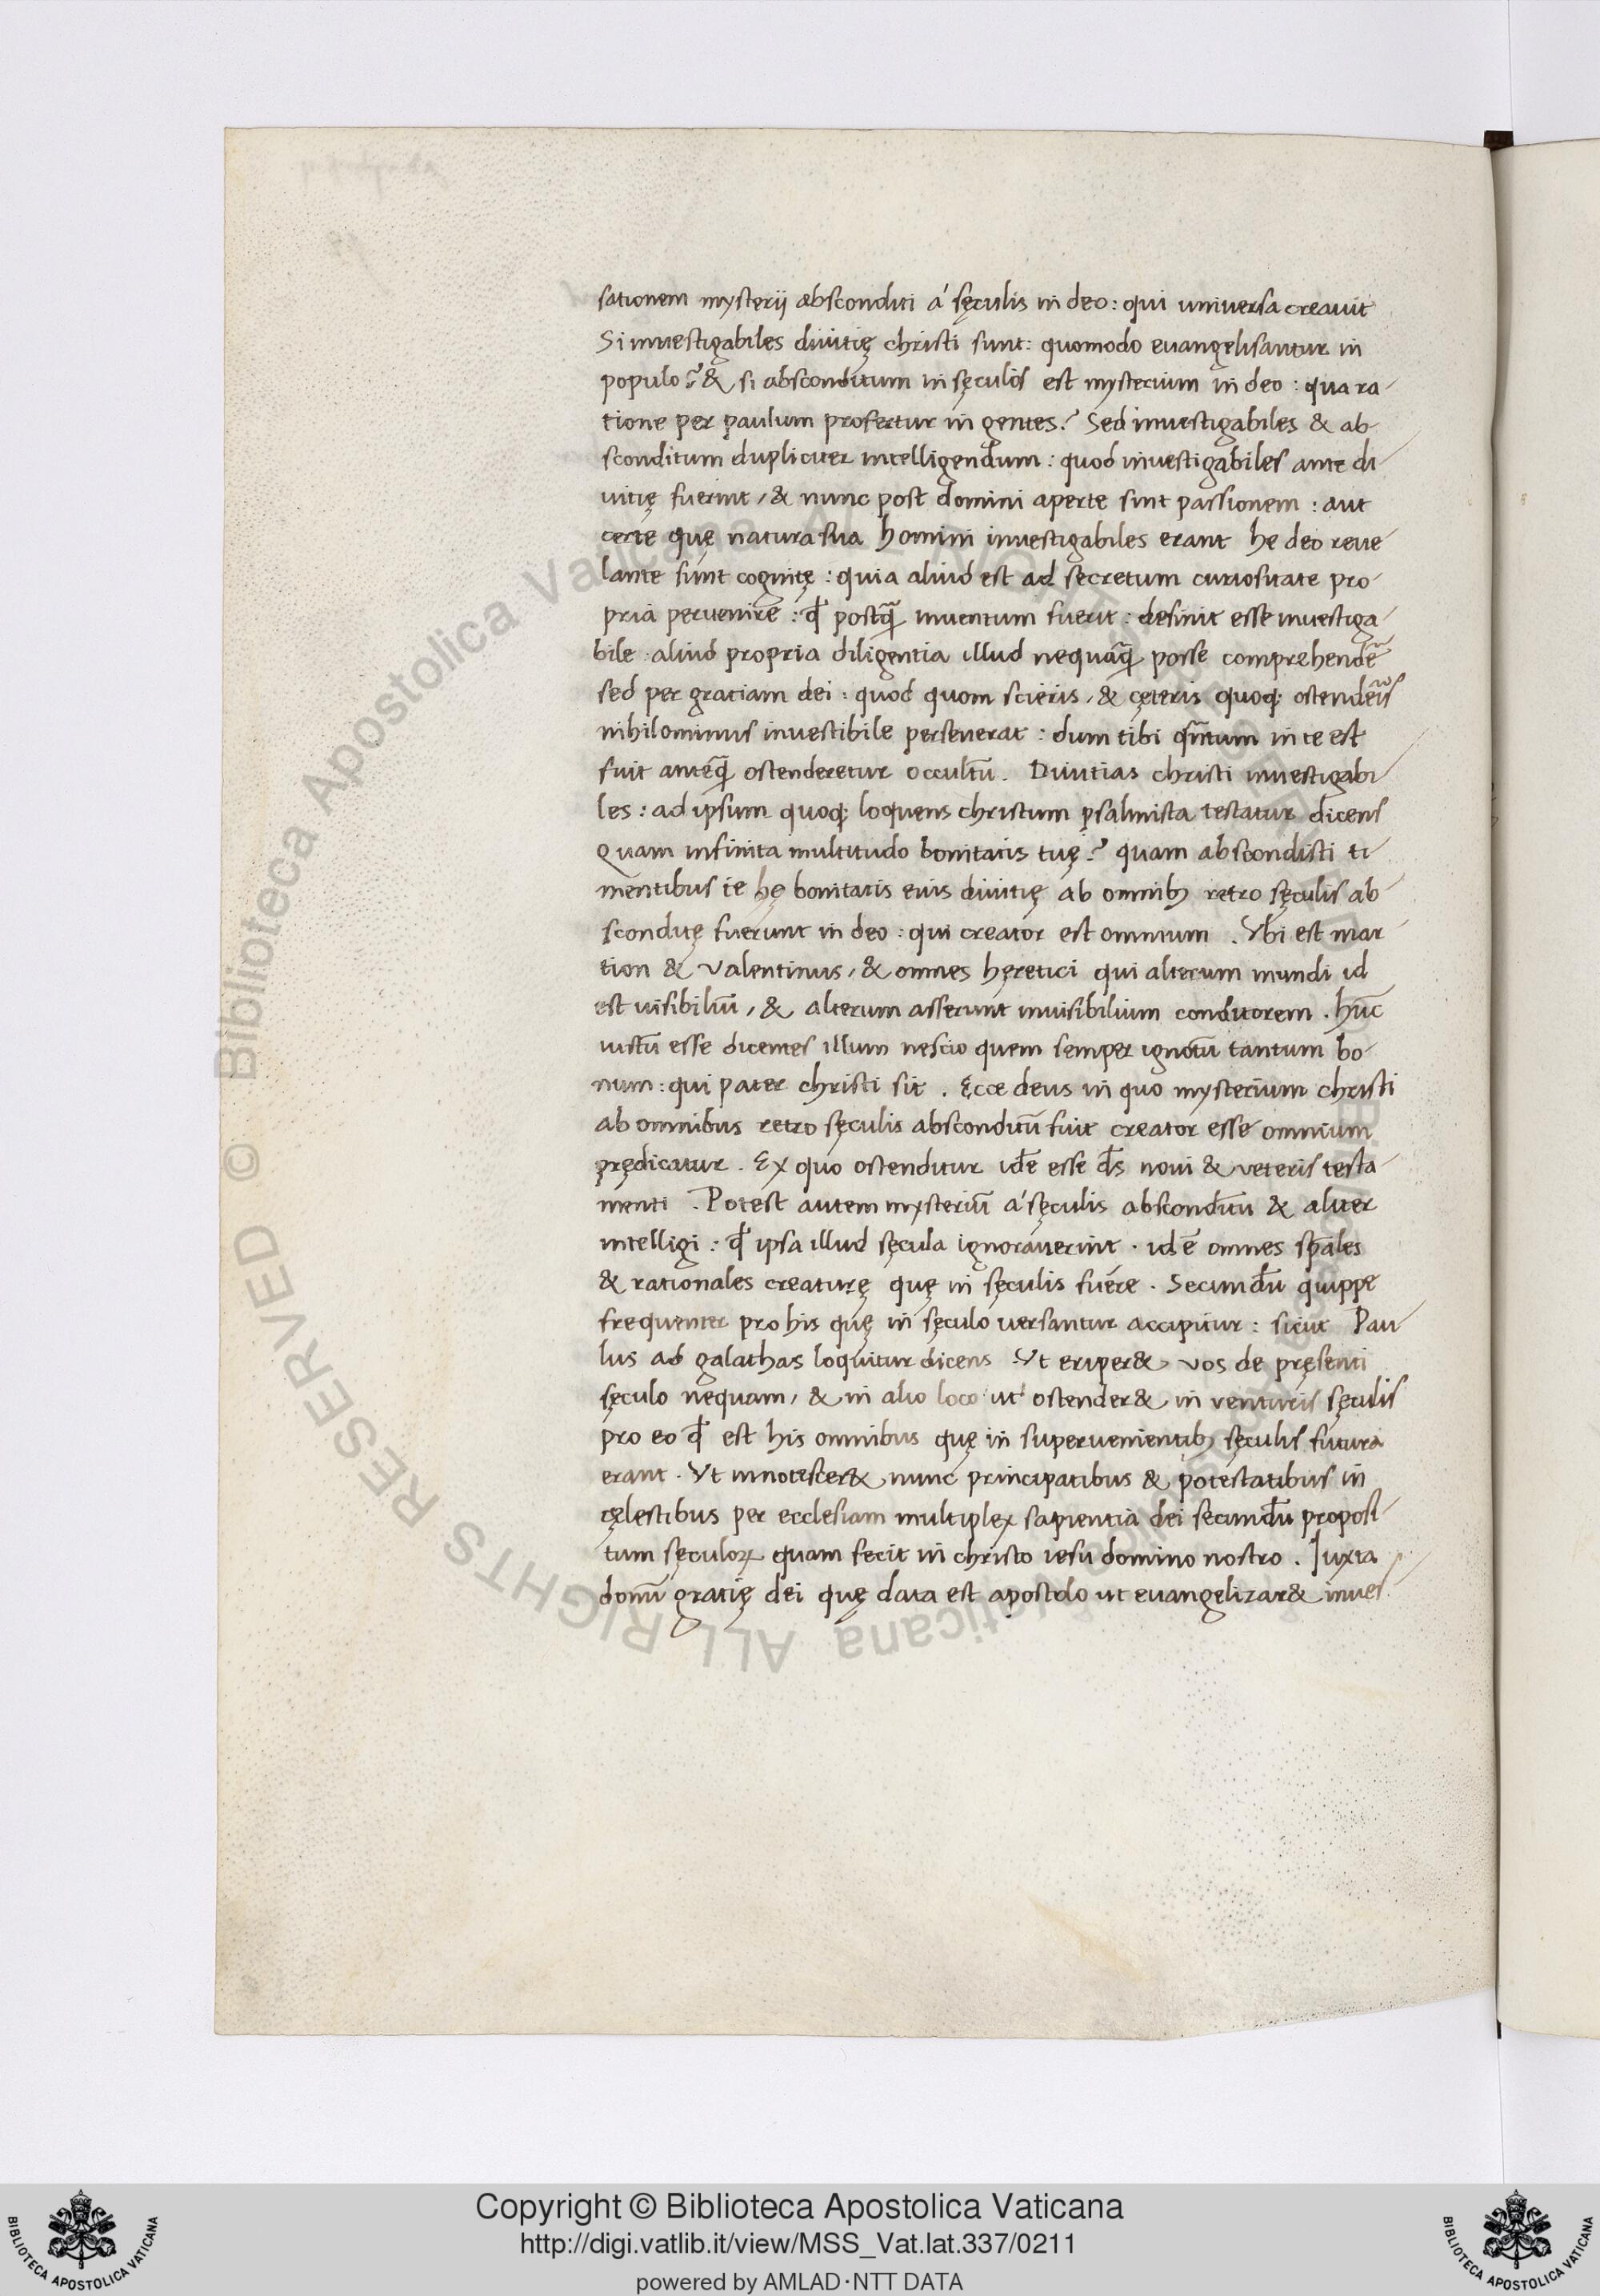 sationem mysterij absconditi á sęculis in deo: qui universa creavit
Si investigabiles divitię christi sunt: quomodo euangelisantur in
populo? & si absconditum in sęculis est mysterium in deo: qua ra-
tione per paulum profertur in gentes? Sed investigabiles & ab-
sconditum dupliciter intelligendum: quod investigabiles ante di-
vitię fuerint, & nunc post domini aperte sint passionem: aut
certe quę natura sua homini investigabiles erant he deo reve-
lante sunt cognitę: quia aliud est ad secretum curiositate pro-
pria pervenire: qđ postq̃ inventum fuerit: definit esse investiga-
bile aliud propria diligentia illud nequaq̃ posse comprehendẽ
sed per gratiam dei: quod quom scieris, & cęteris quoq; ostenderis
nihilominus investibile perseverat: dum tibi qñtum in te est
fuit anteq̃ ostenderetur occultũ. Divitias christi investigabi-
les: ad ipsum quoq; loquens christum psalmista testatur dicens
Quam infinita multitudo bonitatis tuę? quam abscondisti ti-
mentibus te hę bonitatis eius divitię ab omnib; retro sęculis ab-
sconditę fuerunt in deo: qui creator est omnium. Vbi est mar-
tion & Valentinus, & omnes hęretici qui alterum mundi id
est visibiliũ, & alterum asserunt invisibilium conditorem. hũc
iustũ esse dicentes illum nescio quem semper ignotũ tantum bo-
num: qui pater christi sit. Ęcce deus in quo mysterium christi
ab omnibus retro sęculis absconditũ fuit creator esse omnium
prędicatur. Ex quo ostenditur idẽ esse d̃s novi & veteris testa-
menti. Potest autem mysteriũ á sęculis absconditũ & aliter
intelligi: qđ ipsa illud sęcula ignoraverint. id ẽ omnes sp̃ales
& rationales creaturę quę in sęculis fuére. Secundũ quippe
frequenter pro his quę in sęculo versantur accipitur: sicut Pau-
lus ad galathas loquitur dicens Vt eriper& vos de pręsenti
sęculo nequam, & in alio loco ut ostender& in venturis sęculis
pro eo qđ est his omnibus quę in supervenientib; sęculis futura
erant. Vt innotescer& nunc principatibus & potestatibus in
cęlestibus per ecclesiam multiplex sapientia dei secundũ proposi-
tum sęculoꝝ quam fecit in christo iesu domino nostro. Juxta
donũ gratię dei quę data est apostolo ut evangelizar& inves-
Copyright © Biblioteca Apostolica Vaticana
http://digi.vatlib.it/view/MSS_Vat.lat.337/0211
powered by AMLAD·NTT DATA
BIBLIOTECA APOSTOLICA VATICANA
BIBLIOTECA APOSTOLICA VATICANA
© Biblioteca Apostolica Vaticana ALL RIGHTS RESERVED